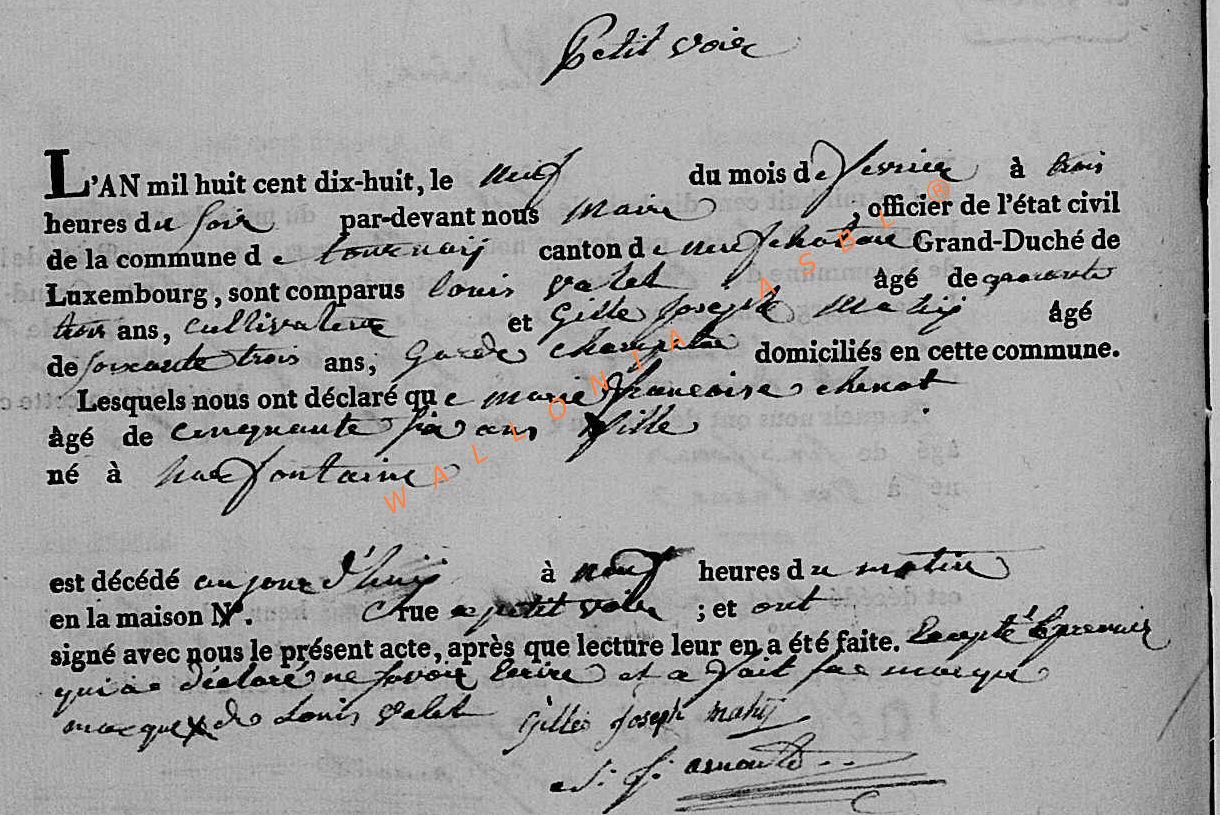 Petit voir
L'AN mil huit cent dix-huit, le neuf du mois de fevrier à trois
heures du soir par-devant nous Maire, officier de l'état civil
de la commune de tournay canton de neufchateau Grand-Duché de
Luxembourg, sont comparus louis valet âgé de quarante
trois ans, cultivateur et Gille Joseph Mahy âgé
de soixante trois ans, Garde champetre domiciliés en cette commune.
Lesquels nous ont déclaré que marie francoise chenot
âgé de cinquante six ans fille
né à fontaine
est décédé aujourd'huy à neuf heures du matin
en la maison N°. rue petit voir ; et ont
signé avec nous le présent acte, après que lecture leur en a été faite. Excepté le premier
qui a déclaré ne savoir écrire et a fait sa marque
marque X de Louis valet Gilles Joseph Mahy
arnould
WALLONIA ASBL ®